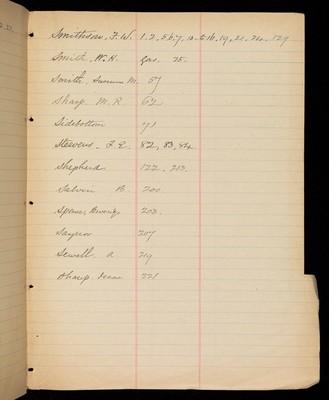 Smithson, F.W. 1.2, 5.6.7, 10 to 16, 19, 21, 24, 129
Smith, W.H. 25.
Smith, M. 57
Sharp M.R 62
Sidebottom 71
Steevens. F.E. 82, 83, 84
Shepherd 122, 213.
Salvin B. 200
Spence, 203.
Saynor 207
Sewell. A 219
Sharp. 221